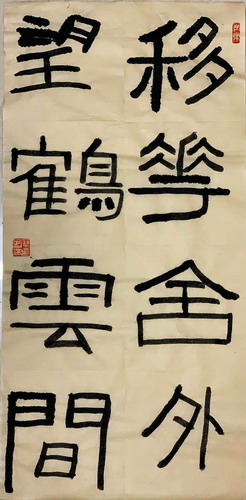 移華舍外
望鶴雲間